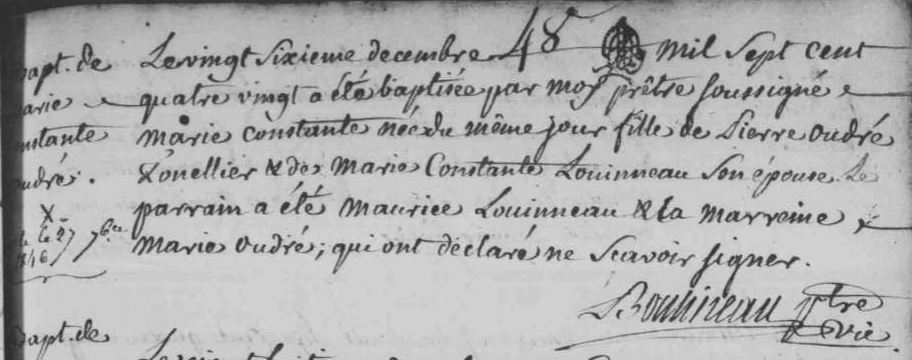 bapt. de
Marie
constante
oudré.
X
le 27 7bre
1846
Le vingt Sixieme decembre 48 mil Sept cent
quatre vingt a été baptisée par moy prêtre soussigné
Marie constante née du même jour fille de Pierre oudré
Tonellier & de Marie Constante Louinneau Son épouse Le
parrain a été Maurice Louinneau & la marreine
Marie oudré; qui ont déclaré ne Scavoir signer.
Bouhineau ptre
vic
bapt. de